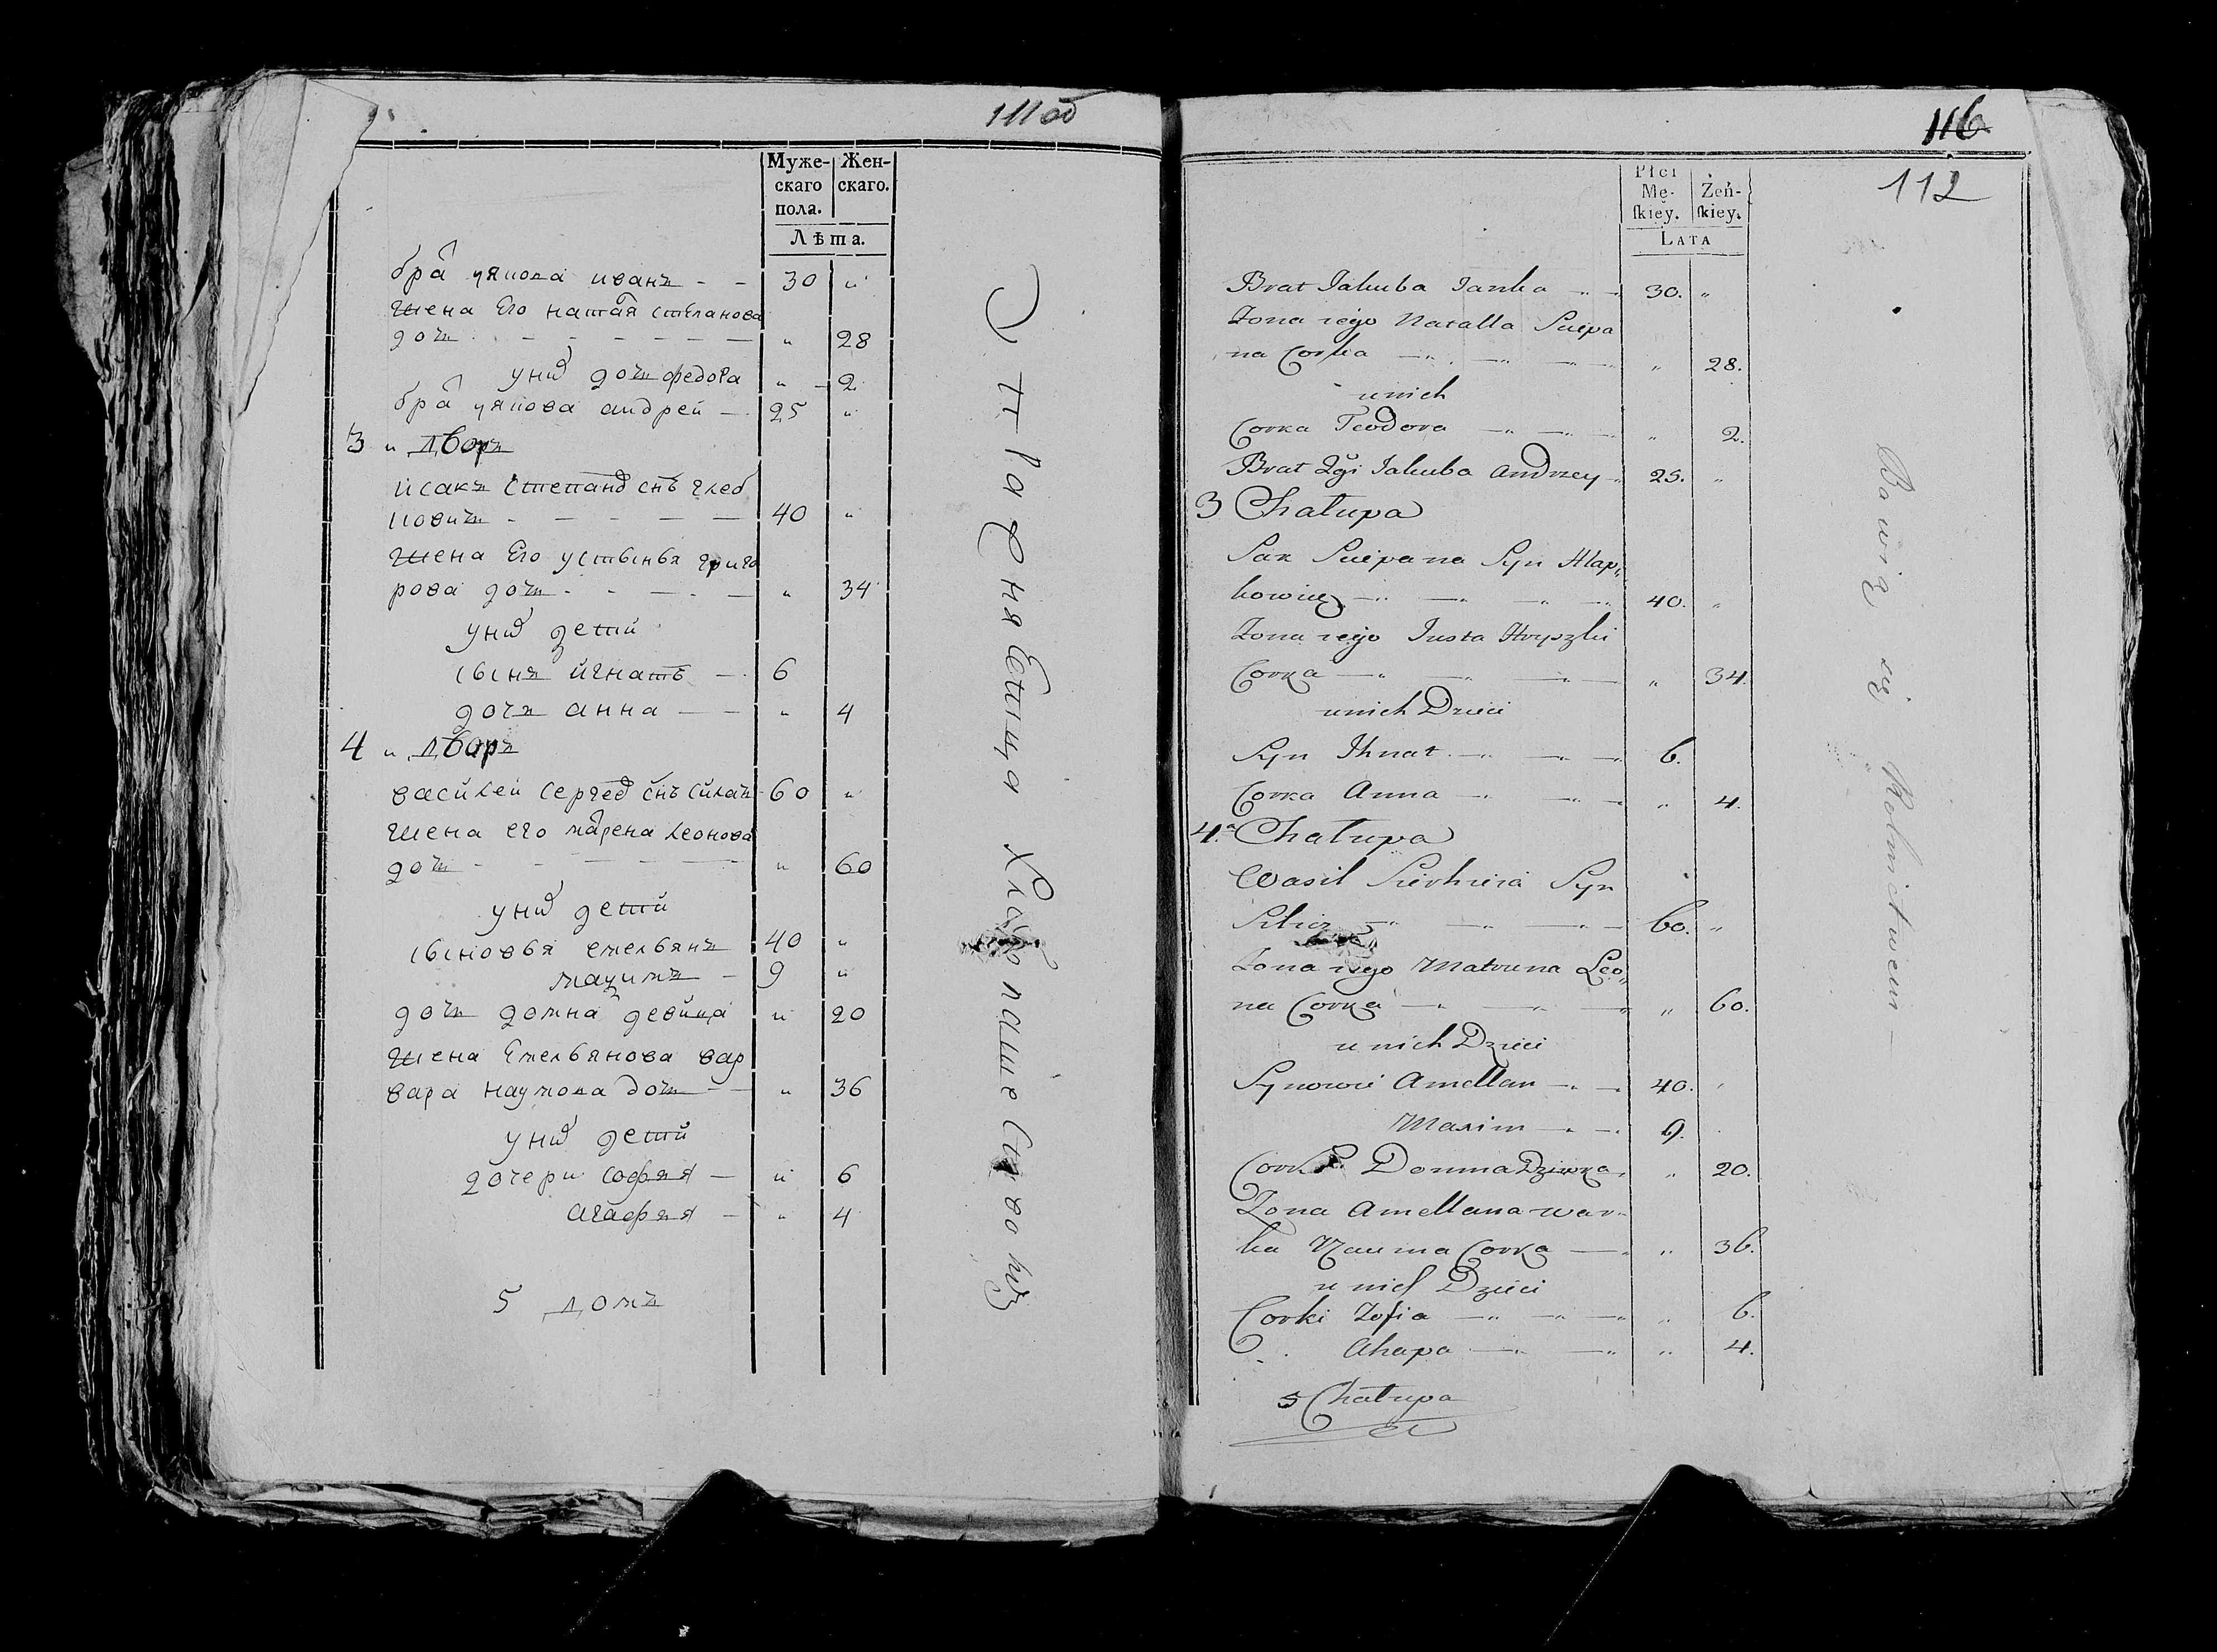 111 об
Муже-
скаго
пола.
Жен-
скаго.
Лѣта.
бра якова иванъ - - 30 "
жена Его натая степанова
дочь - - - - - - " 28
у них дочь федора " 2
бра якова андрей - 25 "
3 и дворъ
исакъ степано снъ глеб
ковичь - - - - - 40 "
жена Его устинья григо
рова дочь - - - - " 34
у них дети
сынъ игнатъ - 6
дочь анна - - " 4
4 и дворъ
василей сергее снъ силачь 60 "
жена его марена леонова
дочь - - - - - " 60
у них дети
сыновья емельянъ 40 "
мацимъ - 9 "
дочь домна девица " 20
жена Емельянова вар
вара наумова дочь - - " 36
у них дети
дочери софья - " 6
агафья - " 4
5 домъ
116
112
Płci
Mę-
skiey.
Żeń-
skiey.
LATA
Brat Jakuba Janka - - 30. "
Żona iego Natalla Sciepa
na Corka - - - " 28.
u nich
Corka Teodora - - - " 2.
Brat 2gi Jakuba Andrzey - 25. "
3 Chałupa
Sak Sciepana Syn Hlap
kowicz - - - - 40. "
Żona iego Justa Hryszki
Corka - - - - " 34.
u nich Dzieci
Syn Ihnat - - - 6.
Corka Anna - - - " 4.
4.a Chałupa
Wasil Sierhieia Syn
Silicz - - - - 60. "
Żona iego Matruna Leo
na Corka - - - - " 60.
u nich Dzieci
Synowie Amellan - - 40. "
Maxim - - 9.
Corka Domna Dziewka " 20.
Żona Amellana war-
ka Nauma Corka - " 36.
u nich Dzieci
Corki Zofia - - - " 6.
Ahapa - - " 4.
5 Chałupa
Bawią się Rolnictwem —